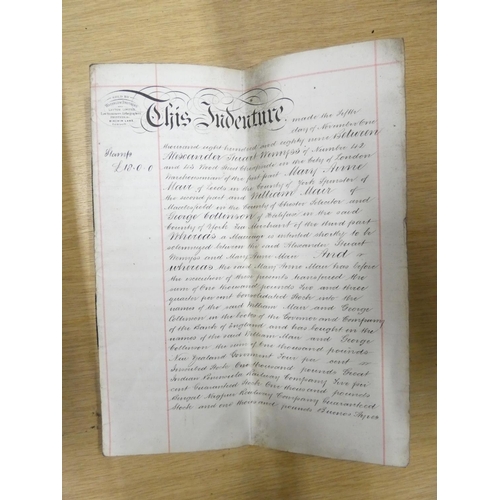 This Indenture made the Fifth
day of November One
thousand eight hundred and eighty nine Between
Alexander Stuart Wemyss of Number 142
Stamps
£10.0.0
and his Wood Street Cheapside in the City of London
of the first part Mary Anne
Mair of Leeds in the County of York Spinster of
the second part and William Mair of
Macclesfield in the County of Chester Solicitor and
George Collinson of Halifax in the said
County of York Merchant of the third part
Whereas a Marriage is intended shortly to be
solemnized between the said Alexander Stuart
Wemyss and Mary Anne Mair And
whereas the said Mary Anne Mair has before
the execution of these presents transferred the
sum of One thousand pounds Two and three
quarter per cent Consolidated Stock into the
names of the said William Mair and George
Collinson in the books of the Governor and Company
of the Bank of England and has bought in the
names of the said William Mair and George
Collinson the sum of One thousand pounds
New Zealand Government Four per cent
Inscribed Stock One thousand pounds Great
Indian Peninsula Railway Company Five per
cent Guaranteed Stock One thousand pounds
Bengal Nagpur Railway Company Guaranteed
Stock and one thousand pounds Buenos Ayres